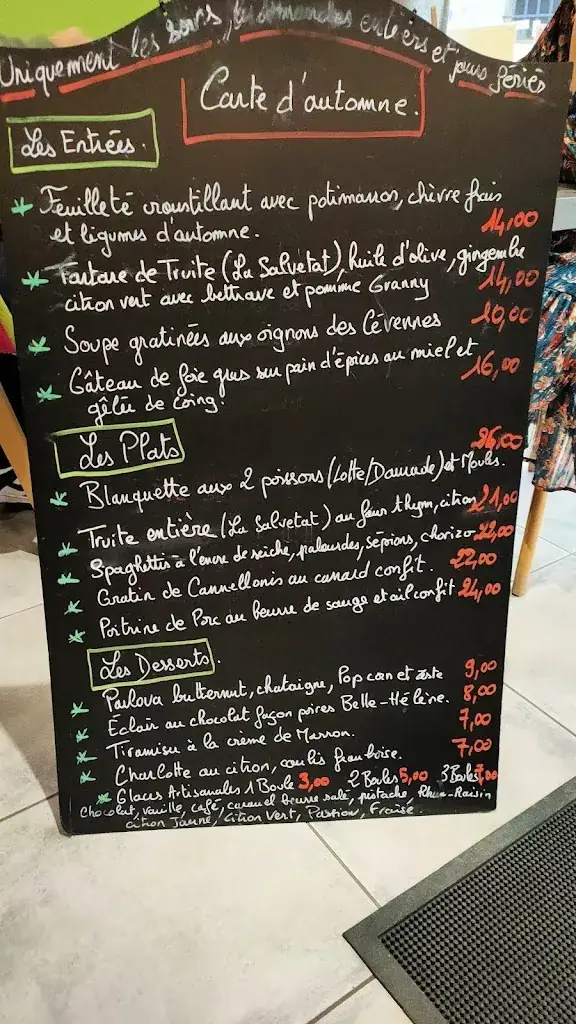 Uniquement les soirs, les dimanches entiers et jours fériés
Carte d'automne.
Les Entrées.
* Feuilleté croustillant avec potimarron, chèvre frais
et légumes d'automne. 14,00
* Tartare de Truite (La Salvetat), huile d'olive, gingembre
citron vert avec bettrave et pomme Granny 14,00
* Soupe gratinées aux oignons des Cévennes 10,00
* Gâteau de foie gras sur pain d'épices au miel et
gêlée de Coing. 16,00
Les Plats
* Blanquette aux 2 poissons (Lotte/Daurade) et Moules. 26,00
* Truite entière (La Salvetat) au four thym, citron 21,00
* Spaghettis à l'encre de seiche, palourdes, sépions, chorizo 22,00
* Gratin de Cannellonis au canard confit. 22,00
* Poitrine de Porc au beurre de sauge et ail confit 24,00
Les Desserts.
* Pavlova butternut, chataigne, Pop corn et zeste 9,00
* Eclair au chocolat façon poires Belle-Hélène. 8,00
* Tiramisu à la crème de Marron. 7,00
* Charlotte au citron, coulis framboise. 7,00
* Glaces Artisanales 1 Boule 3,00 2 Boules 5,00 3 Boules 7,00
Chocolat, vanille, café, caramel beurre salé, pistache, Rhum-Raisin
citron Jaune, Citron Vert, Passion, Fraise.